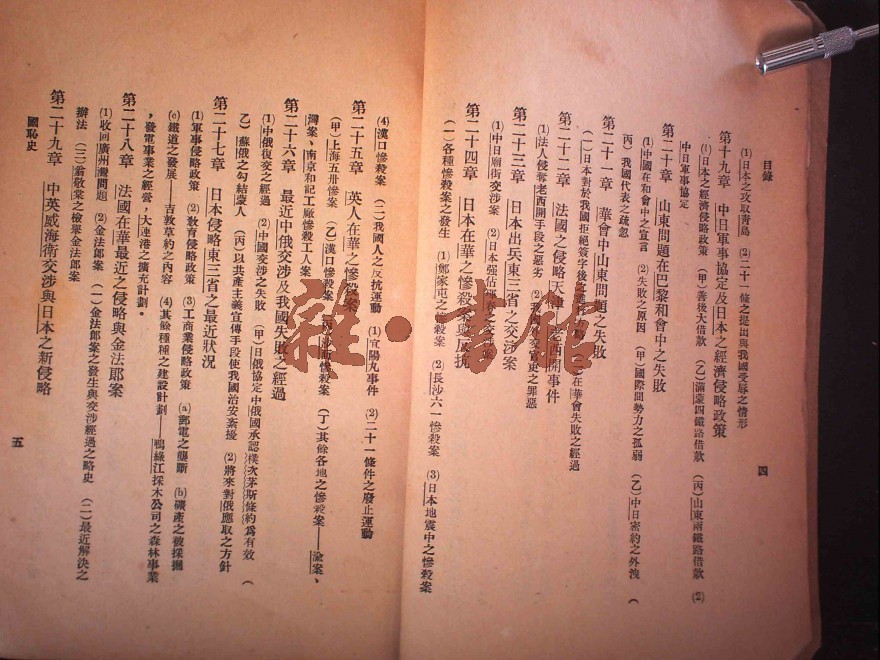 目錄
四
(1)日本之攻取青島 (2)二十一條之提出與我國受辱之情形
第十九章 中日軍事協定及日本之經濟侵略政策
(1)日本之經濟侵略政策 (甲)善後大借款 (乙)滿蒙四鐵路借款 (丙)山東兩鐵路借款 (2)
中日軍事協定
第二十章 山東問題在巴黎和會中之失敗
(1)中國在和會中之宣言 (2)失敗之原因 (甲)國際間勢力之孤弱 (乙)中日密約之外洩 (
丙)我國代表之疏忽
第二十一章 華會中山東問題之失敗
(一)日本對於我國拒絕簽字後之 在華會失敗之經過
第二十二章 法國之侵略天津老西開事件
(1)法人侵奪老西開手段之惡劣 (2) 外交官吏之罪惡
第二十三章 日本出兵東三省之交涉案
(1)中日廟街交涉案 (2)日本强佔琿春之交涉
第二十四章 日本在華之慘殺案與反抗
(一)各種慘殺案之發生 (1)鄭家屯之慘殺案 (2)長沙六一慘殺案 (3)日本地震中之慘殺案
(4)漢口慘殺案 (二)我國人之反抗運動 (1)宜陽丸事件 (2)二十一條件之廢止運動
第二十五章 英人在華之慘殺案
(甲)上海五卅慘案 (乙)漢口慘殺案 (丙)沙面慘殺案 (丁)其餘各地之慘殺案——渝案、
灣案、南京和記工廠慘殺工人案
第二十六章 最近中俄交涉及我國失敗之經過
(1)中俄復交之經過 (2)中國交涉之失敗 (甲)日俄協定中俄國承認樸次茅斯條約爲有效 (
乙)蘇俄之勾結蒙人 (丙)以共產主義宣傳手段使我國治安紊擾 (2)將來對俄應取之方針
第二十七章 日本侵略東三省之最近狀况
(1)軍事侵略政策 (2)敎育侵略政策 (3)工商業侵略政策 (a)郵電之壟斷 (b)礦產之被採掘
(c)鐵道之發展——吉敦草約之內容 (4)其餘種種之建設計劃——鴨綠江採木公司之森林事業
,發電事業之經營,大連港之擴充計劃。
第二十八章 法國在華最近之侵略與金法郎案
(1)收回廣州灣問題 (2)金法郎案 (一)金法郎案之發生與交涉經過之略史 (二)最近解決之
辦法 (三)翁敬棠之檢舉金法郎案
第二十九章 中英威海衛交涉與日本之新侵略
國恥史
五
雜·書館